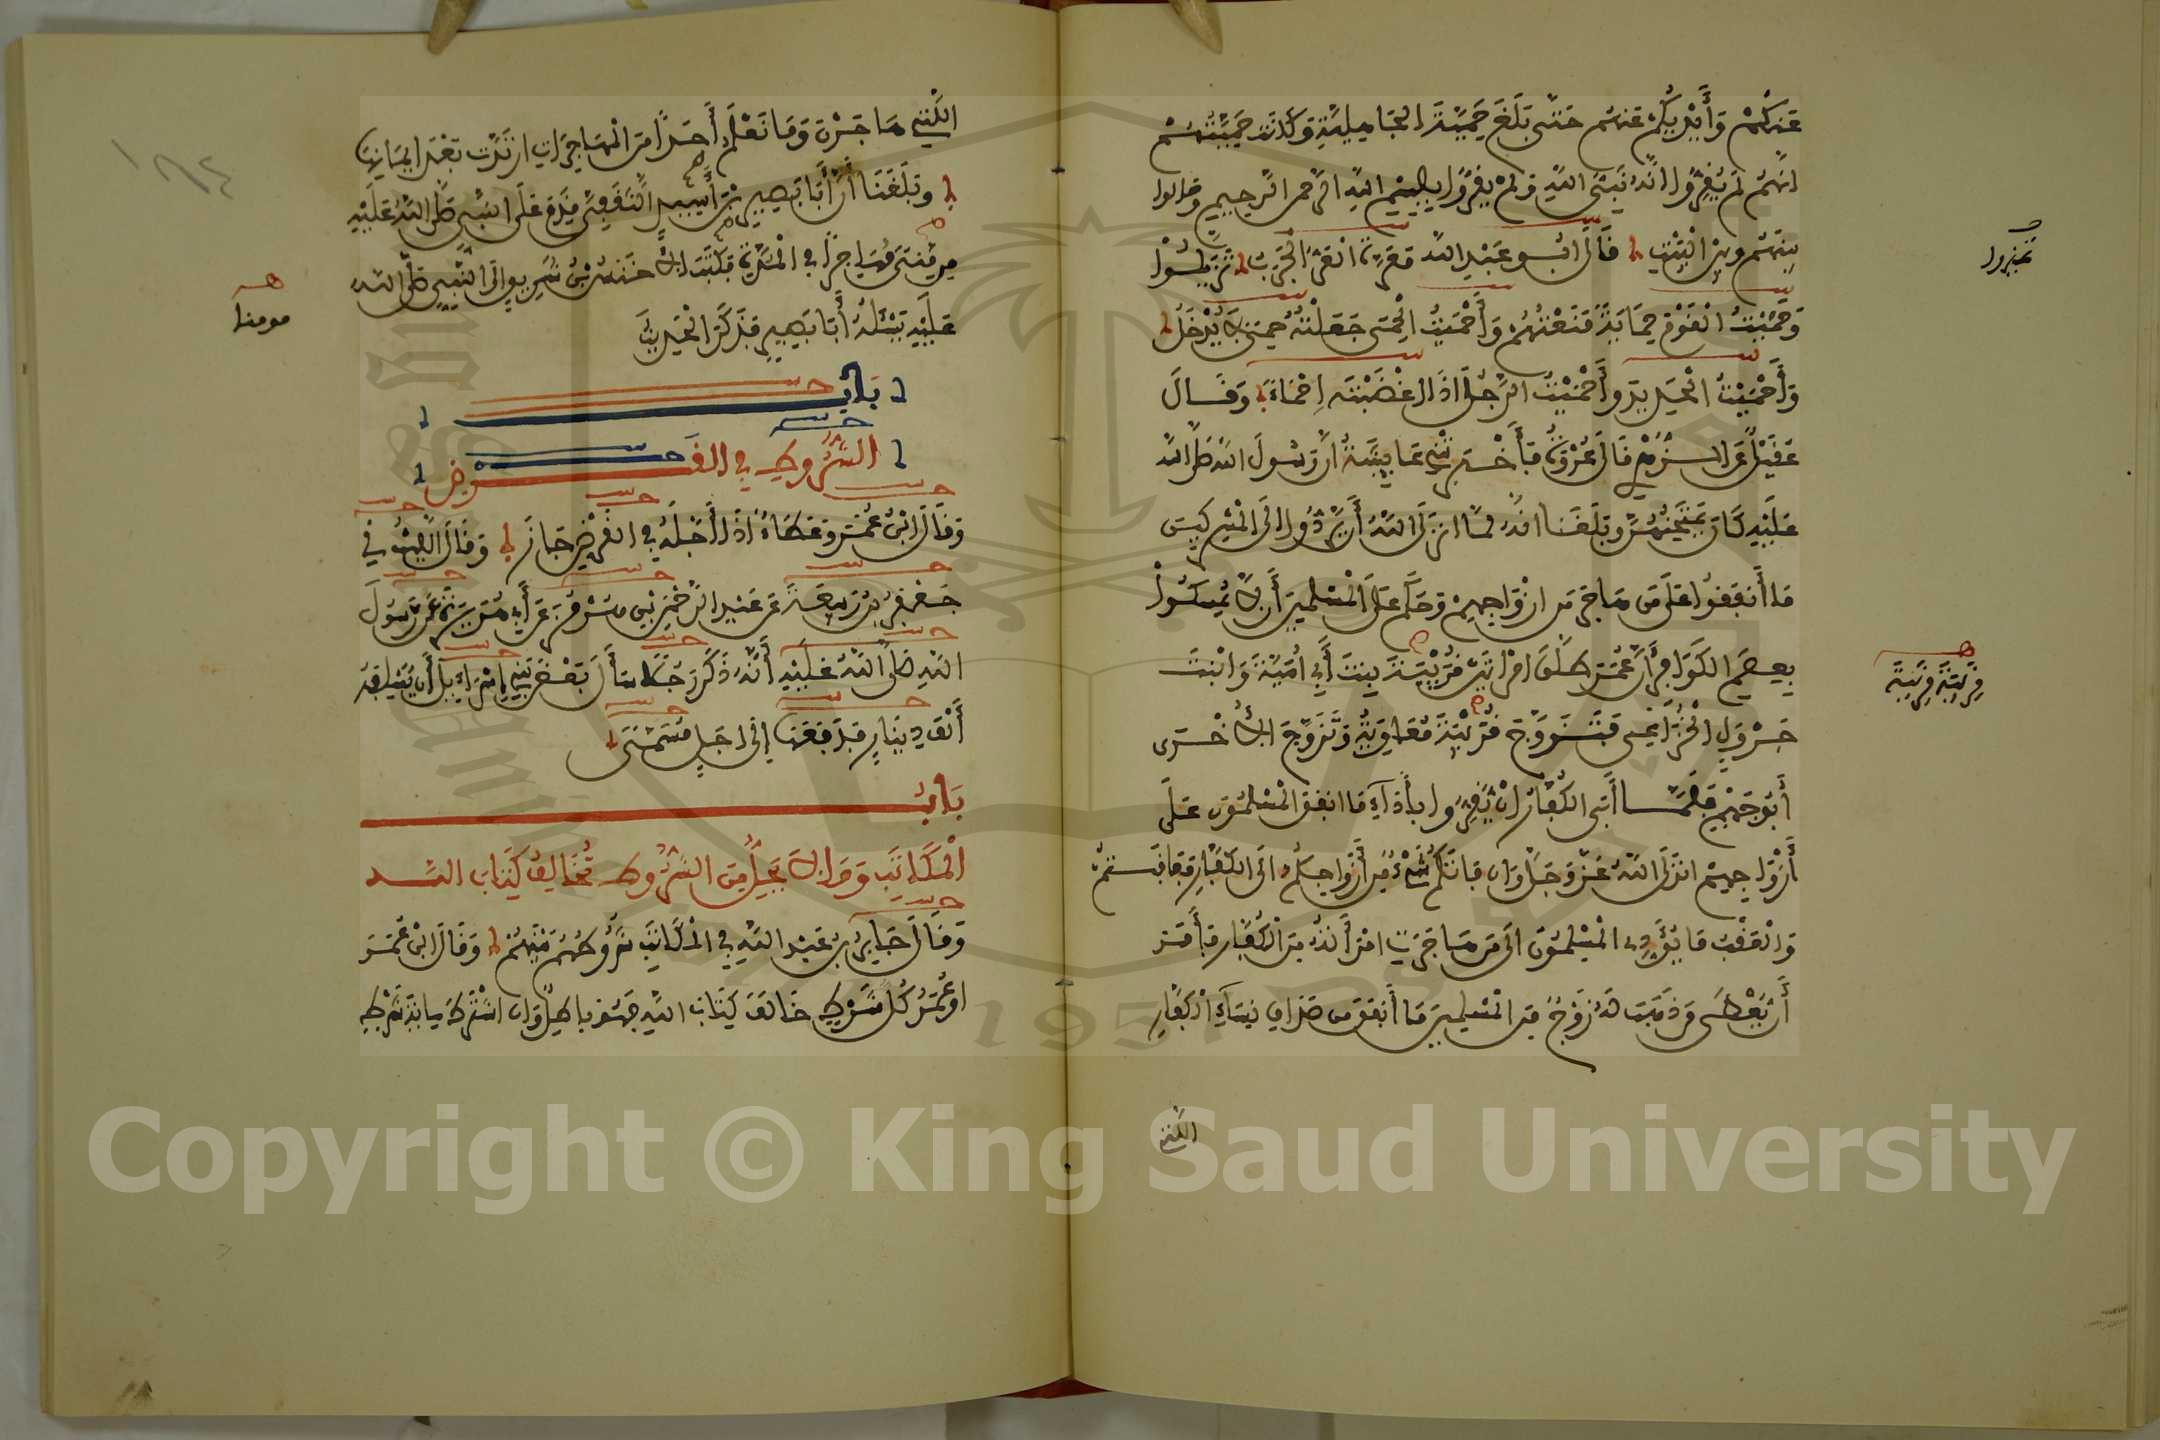 عَنكُمْ وَأَيْدِيَكُمْ عَنهُم حَتَّى بَلَغَ حَمِيَّةَ الجَاهِلِيَّةِ وَكَانَت حَمِيَّتُهُمْ
انَّهُمْ لَمْ يُقِرُّوا انَّهُ نَبِيُّ اللهِ وَلَمْ يُقِرُّوا بِبِسْمِ اللهِ الرَّحْمَنِ الرَّحِيمِ وَحَالُوا
بينَهُم وبينَ الْبَيْتِ قَالَ ابُو عَبْدِ اللهِ مَعَرَّةٌ الْعُرُّ الْجَرَبُ تَزَيَّلُوا
تميزوا
وَحَمَيْتُ الْقَوْمَ حِمَايَةً مَنَعْتُهُمْ وَأَحْمَيْتُ الْحِمَى جَعَلْتُهُ حِمًى لَا يُدْخَلُ
وَأَحْمَيْتُ الْحَدِيدَ وأَحْمَيْتُ الرَّجُلَ اذَا اغْضَبْتَه اِحْمَاءً وَقَالَ
عُقَيْلٌ عَنِ الزُّهْرِيِّ قَالَ عُرْوَةُ فَأَخْبَرَتْنِي عَايِشَةُ أَنَّ رَسُولَ اللهِ صَلَّى اللهُ
عَلَيْهِ كَانَ يَمْتَحِنُهُنَّ وبَلَغَنا انَّهُ لمَّا انزَلَ اللهُ أَن يَرُدُّوا الَى الْمُشْرِكِينَ
مَا أَنفَقُوا عَلَى مَن هَاجَرَ مِن ازْوَاجِهِمْ وَحَكَمَ عَلَى الْمُسْلِمِينَ أَن لَا يُمَسِّكُوا
بِعِصَمِ الكَوَافِرِ أَنَّ عُمَرَ طَلَّقَ امْرَأَتَيْنِ قُرَيْبَةَ بِنتَ أَبِي أُمَيَّةَ وَابْنَتَ
قَرِيبَةَ قَرِيبَةَ
جَرْوَلٍ الْخُزَاعِيِّ فَتَزَوَّجَ قُرَيْبَةَ مُعَاوِيَةُ وَتَزَوَّجَ الأُخْرَى
أَبُو جَهْمٍ فَلَمَّا أَبَى الكُفَّارُ ان يُقِرُّوا بأَدَاءِ مَا انفَقَ الْمُسْلِمُونَ عَلَى
أَزْوَاجِهِمْ انزَلَ اللهُ عَزَّوَجَلَّ وَإن فَاتَكُمْ شَيْءٌ مِّنَ أَزْوَاجِكُمُ الَى الكُفَّارِ فَعَاقَبْتُمْ
وَالْعَقْبُ مَا يُؤَدِّي الْمُسْلِمُونَ الَى مَن هَاجَرَتِ امْرَأَتُهُ مِنَ الْكُفَّارِ فَأَمَرَ
أَن يُعْطَى مَن ذَهَبَ لَهُ زَوْجٌ مِنَ الْمُسْلِمِينَ مَا أَنفَقَ مِن صَدَاقِ نِسَاءِ الْكُفَّارِ
اللَّاتِي
اللَّاتِي هَاجَرْنَ وَمَا نَعْلَمُ أَحَدًا مِنَ الْمُهَاجِرَاتِ ارْتَدَّتْ بَعْدَ ايمَانِهَا
وبَلَغَنَا أَنَّ أَبَا بَصِيرِ بْنَ أَسِيدٍ الثَّقَفِيَّ قَدِمَ عَلَى النَّبِيِّ صَلَّى اللهُ عَلَيْهِ
مِن مِنَى مُهَاجِرًا فِي الْمُدَّةِ فَكَتَبَ الأَخْنَسُ بْنُ شَرِيقٍ الَى النَّبِيِّ صَلَّى اللهُ
مومنا
عَلَيْهِ يَسْئَلُهُ أَبَا بَصِيرٍ فَذَكَرَ الْحَدِيثَ
بَابُ
الشُّرُوطِ فِي القَرْضِ
وَقَالَ ابْنُ عُمَرَ وَعَطَاءٌ إِذَا أَجَّلَهُ فِي القَرْضِ جَازَ وَقَالَ اللَّيْثُ نِي
جَعْفَرُ بْنُ رَبِيعَةَ عَن عَبْدِ الرَّحْمَنِ بْنِ هُرْمُزَ عَن أَبِي هُرَيْرَةَ عَن رَسُولِ
اللهِ صَلَّى اللهُ عَلَيْهِ أَنَّهُ ذَكَرَ رَجُلًا سَأَلَ بَعْضَ بَنِي إِسْرَاءِيلَ أَن يُسْلِفَهُ
أَلْفَ دِينَارٍ فَدَفَعَهَا إِلَى أَجَلٍ مُسَمًّى
بَابُ
الْمُكَاتَبِ وَمَا لَا يَحِلُّ مِنَ الشُّرُوطِ تُخَالِفُ كِتَابَ اللهِ
وَقَالَ جَابِرُ بْنُ عَبْدِ اللهِ فِي الْمُكَاتَبِ شُرُوطُهُمْ بَيْنَهُمْ وَقَالَ ابْنُ عُمَرَ
اوْ عُمَرُ كُلُّ شَرْطٍ خَالَفَ كِتَابَ اللهِ فَهُوَ بَاطِلٌ وَإِن اشْتَرَطَ مِايَةَ شَرْطٍ
١٨٤
Copyright © King Saud University
1957